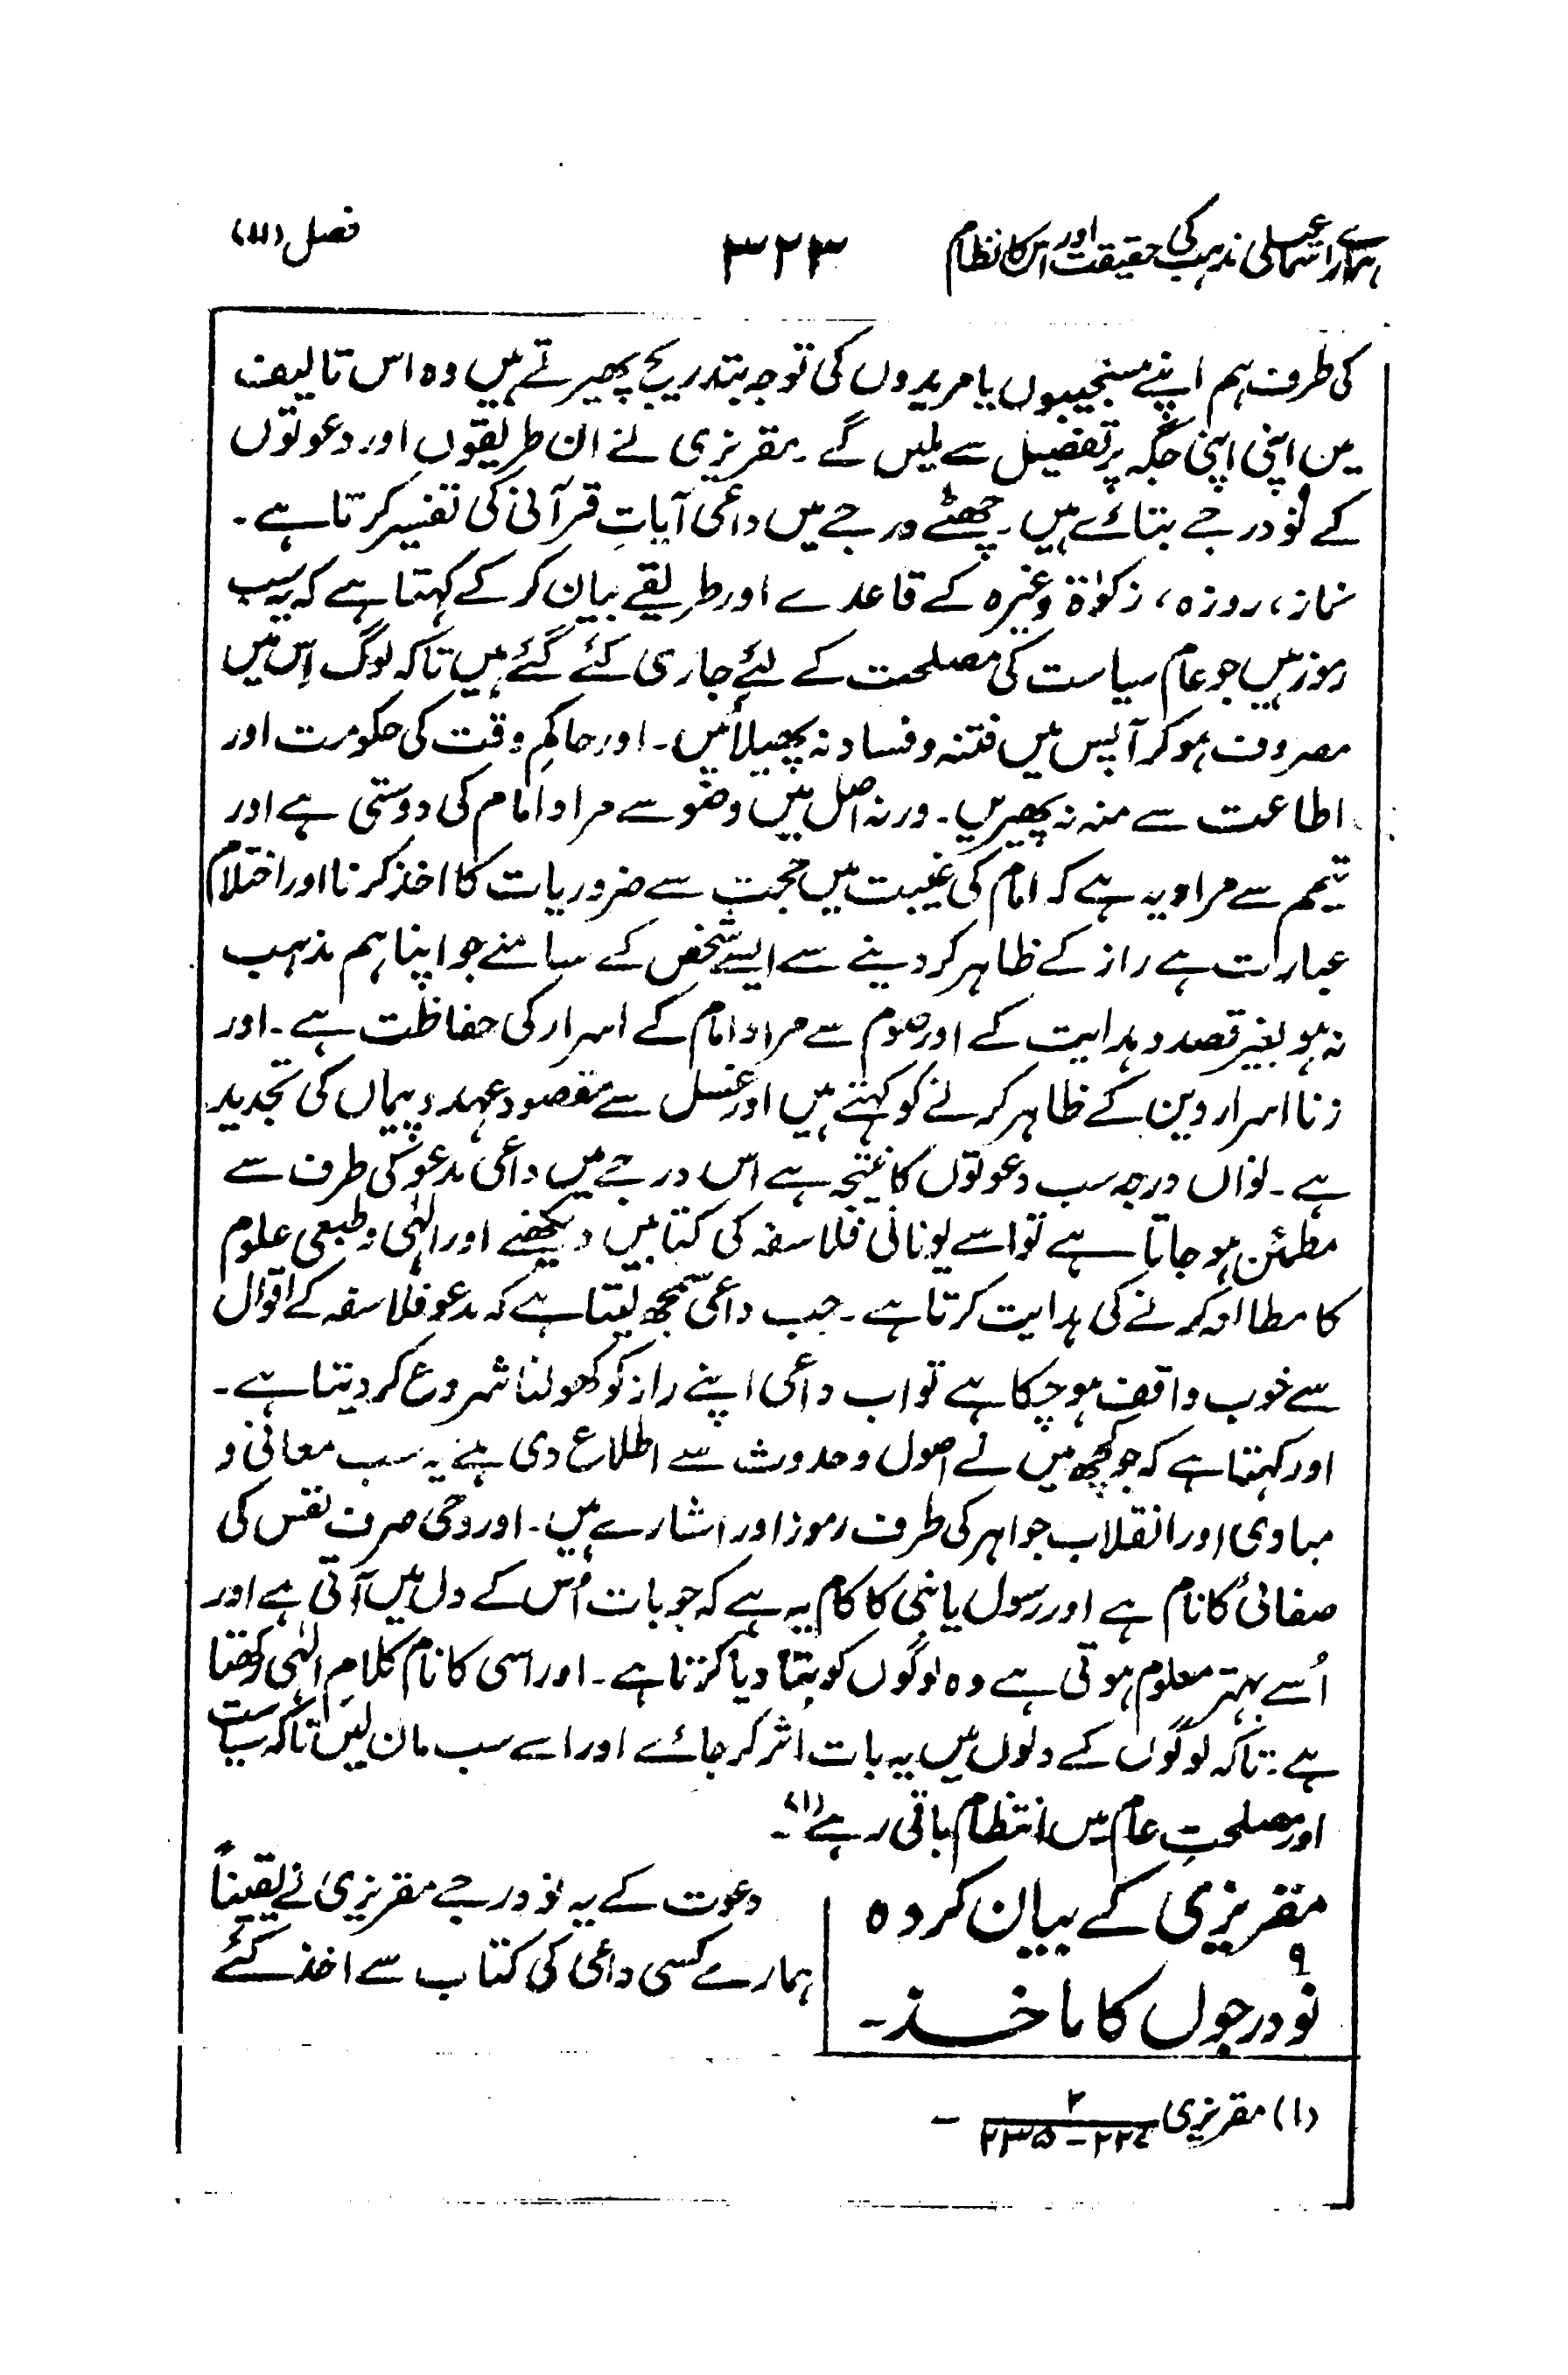 ہمارے اسماعیلی مذہب کی حقیقت اور اس کا نظام ۳۲۳ فصل (۱۱)
کی طرف ہم اپنے مستجیبوں یا مریدوں کی توجہ بتدریج پھیرتے ہیں وہ اس تالیف
میں اپنی اپنی جگہ پر تفصیل سے ملیں گے۔ مقریزی نے ان طریقوں اور دعوتوں
کے نو درجے بتائے ہیں۔ چھٹے درجے میں داعی آیاتِ قرآنی کی تفسیر کرتا ہے۔
نماز، روزہ، زکوٰۃ وغیرہ کے قاعدے اور طریقے بیان کر کے کہتا ہے کہ یہ سب
رموز ہیں جو عام سیاست کی مصلحت کے لئے جاری کئے گئے ہیں تاکہ لوگ اِس میں
مصروف ہو کر آپس میں فتنہ و فساد نہ پھیلائیں۔ اور حاکمِ وقت کی حکومت اور
اطاعت سے منہ نہ پھیریں۔ ورنہ اصل میں وضو سے مراد امام کی دوستی ہے اور
تیمم سے مراد یہ ہے کہ امام کی غیبت میں حجت سے ضروریات کا اخذ کرنا اور احتلام
عبارت ہے راز کے ظاہر کر دینے سے ایسے شخص کے سامنے جو اپنا ہم مذہب
نہ ہو بغیر قصد و ہدایت کے اور صوم سے مراد امام کے اسرار کی حفاظت ہے۔ اور
زنا اسرار دین کے ظاہر کرنے کو کہتے ہیں اور غسل سے مقصود عہد و پیماں کی تجدید
ہے۔ نواں درجہ سب دعوتوں کا نتیجہ ہے اس درجے میں داعی مدعو کی طرف سے
مطمئن ہو جاتا ہے تو اسے یونانی فلاسفہ کی کتابیں دیکھنے اور الٰہی و طبعی علوم
کا مطالعہ کرنے کی ہدایت کرتا ہے۔ جب داعی سمجھ لیتا ہے کہ مدعو فلاسفہ کے اقوال
سے خوب واقف ہو چکا ہے تو اب داعی اپنے راز کو کھولنا شروع کر دیتا ہے۔
اور کہتا ہے کہ جو کچھ میں نے اصول و حدوث سے اطلاع دی ہے یہ سب معانی و
مبادی اور انقلاب جواہر کی طرف رموز اور اشارے ہیں۔ اور وحی صرف نفس کی
صفائی کا نام ہے اور رسول یا نبی کا کام یہ ہے کہ جو بات اُس کے دل میں آتی ہے اور
اُسے بہتر معلوم ہوتی ہے وہ لوگوں کو بتا دیا کرتا ہے۔ اور اسی کا نام کلامِ الٰہی رکھتا
ہے: تاکہ لوگوں کے دلوں میں یہ بات اثر کر جائے اور اسے سب مان لیں تاکہ سیاست
اور مصلحتِ عام میں انتظام باقی رہے(۱)۔
مقریزی کے بیان کردہ
۹
نو درجوں کا ماخذ۔
دعوت کے یہ نو درجے مقریزی نے یقیناً
ہمارے کسی داعی کی کتاب سے اخذ کئے
(۱) مقریزی ۲ / ۲۲۷-۲۳۵ -